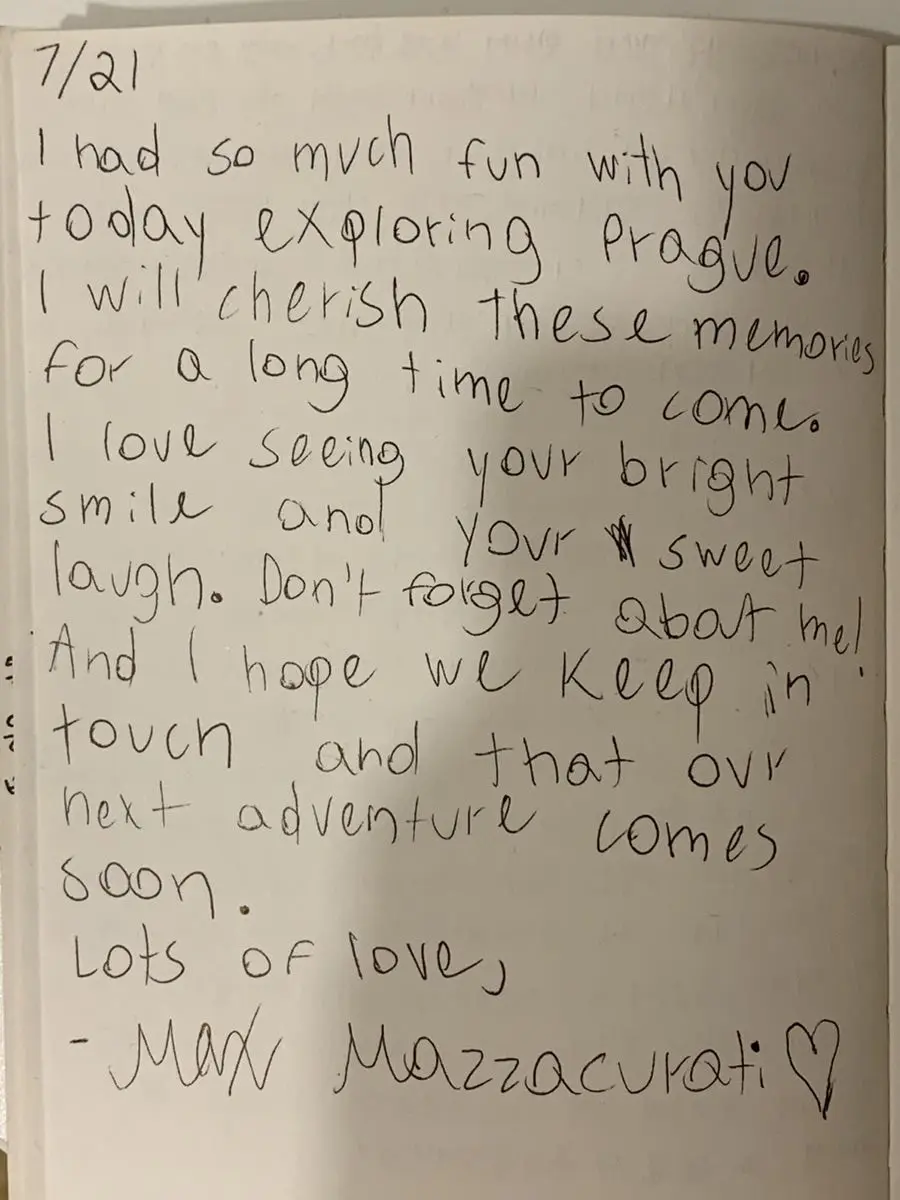 7/21
I had so much fun with you
today exploring Prague.
I will cherish these memories
for a long time to come.
I love seeing your bright
smile and your sweet
laugh. Don't forget about me!
And I hope we keep in
touch and that our
next adventure comes
soon.
Lots of love,
- Max Mazzacurati ♡